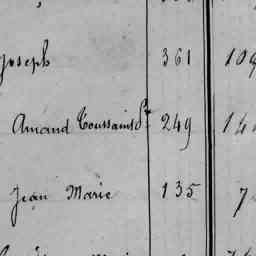 Joseph 361 109
Amand Toussaint 249
Jean Marie 135 7